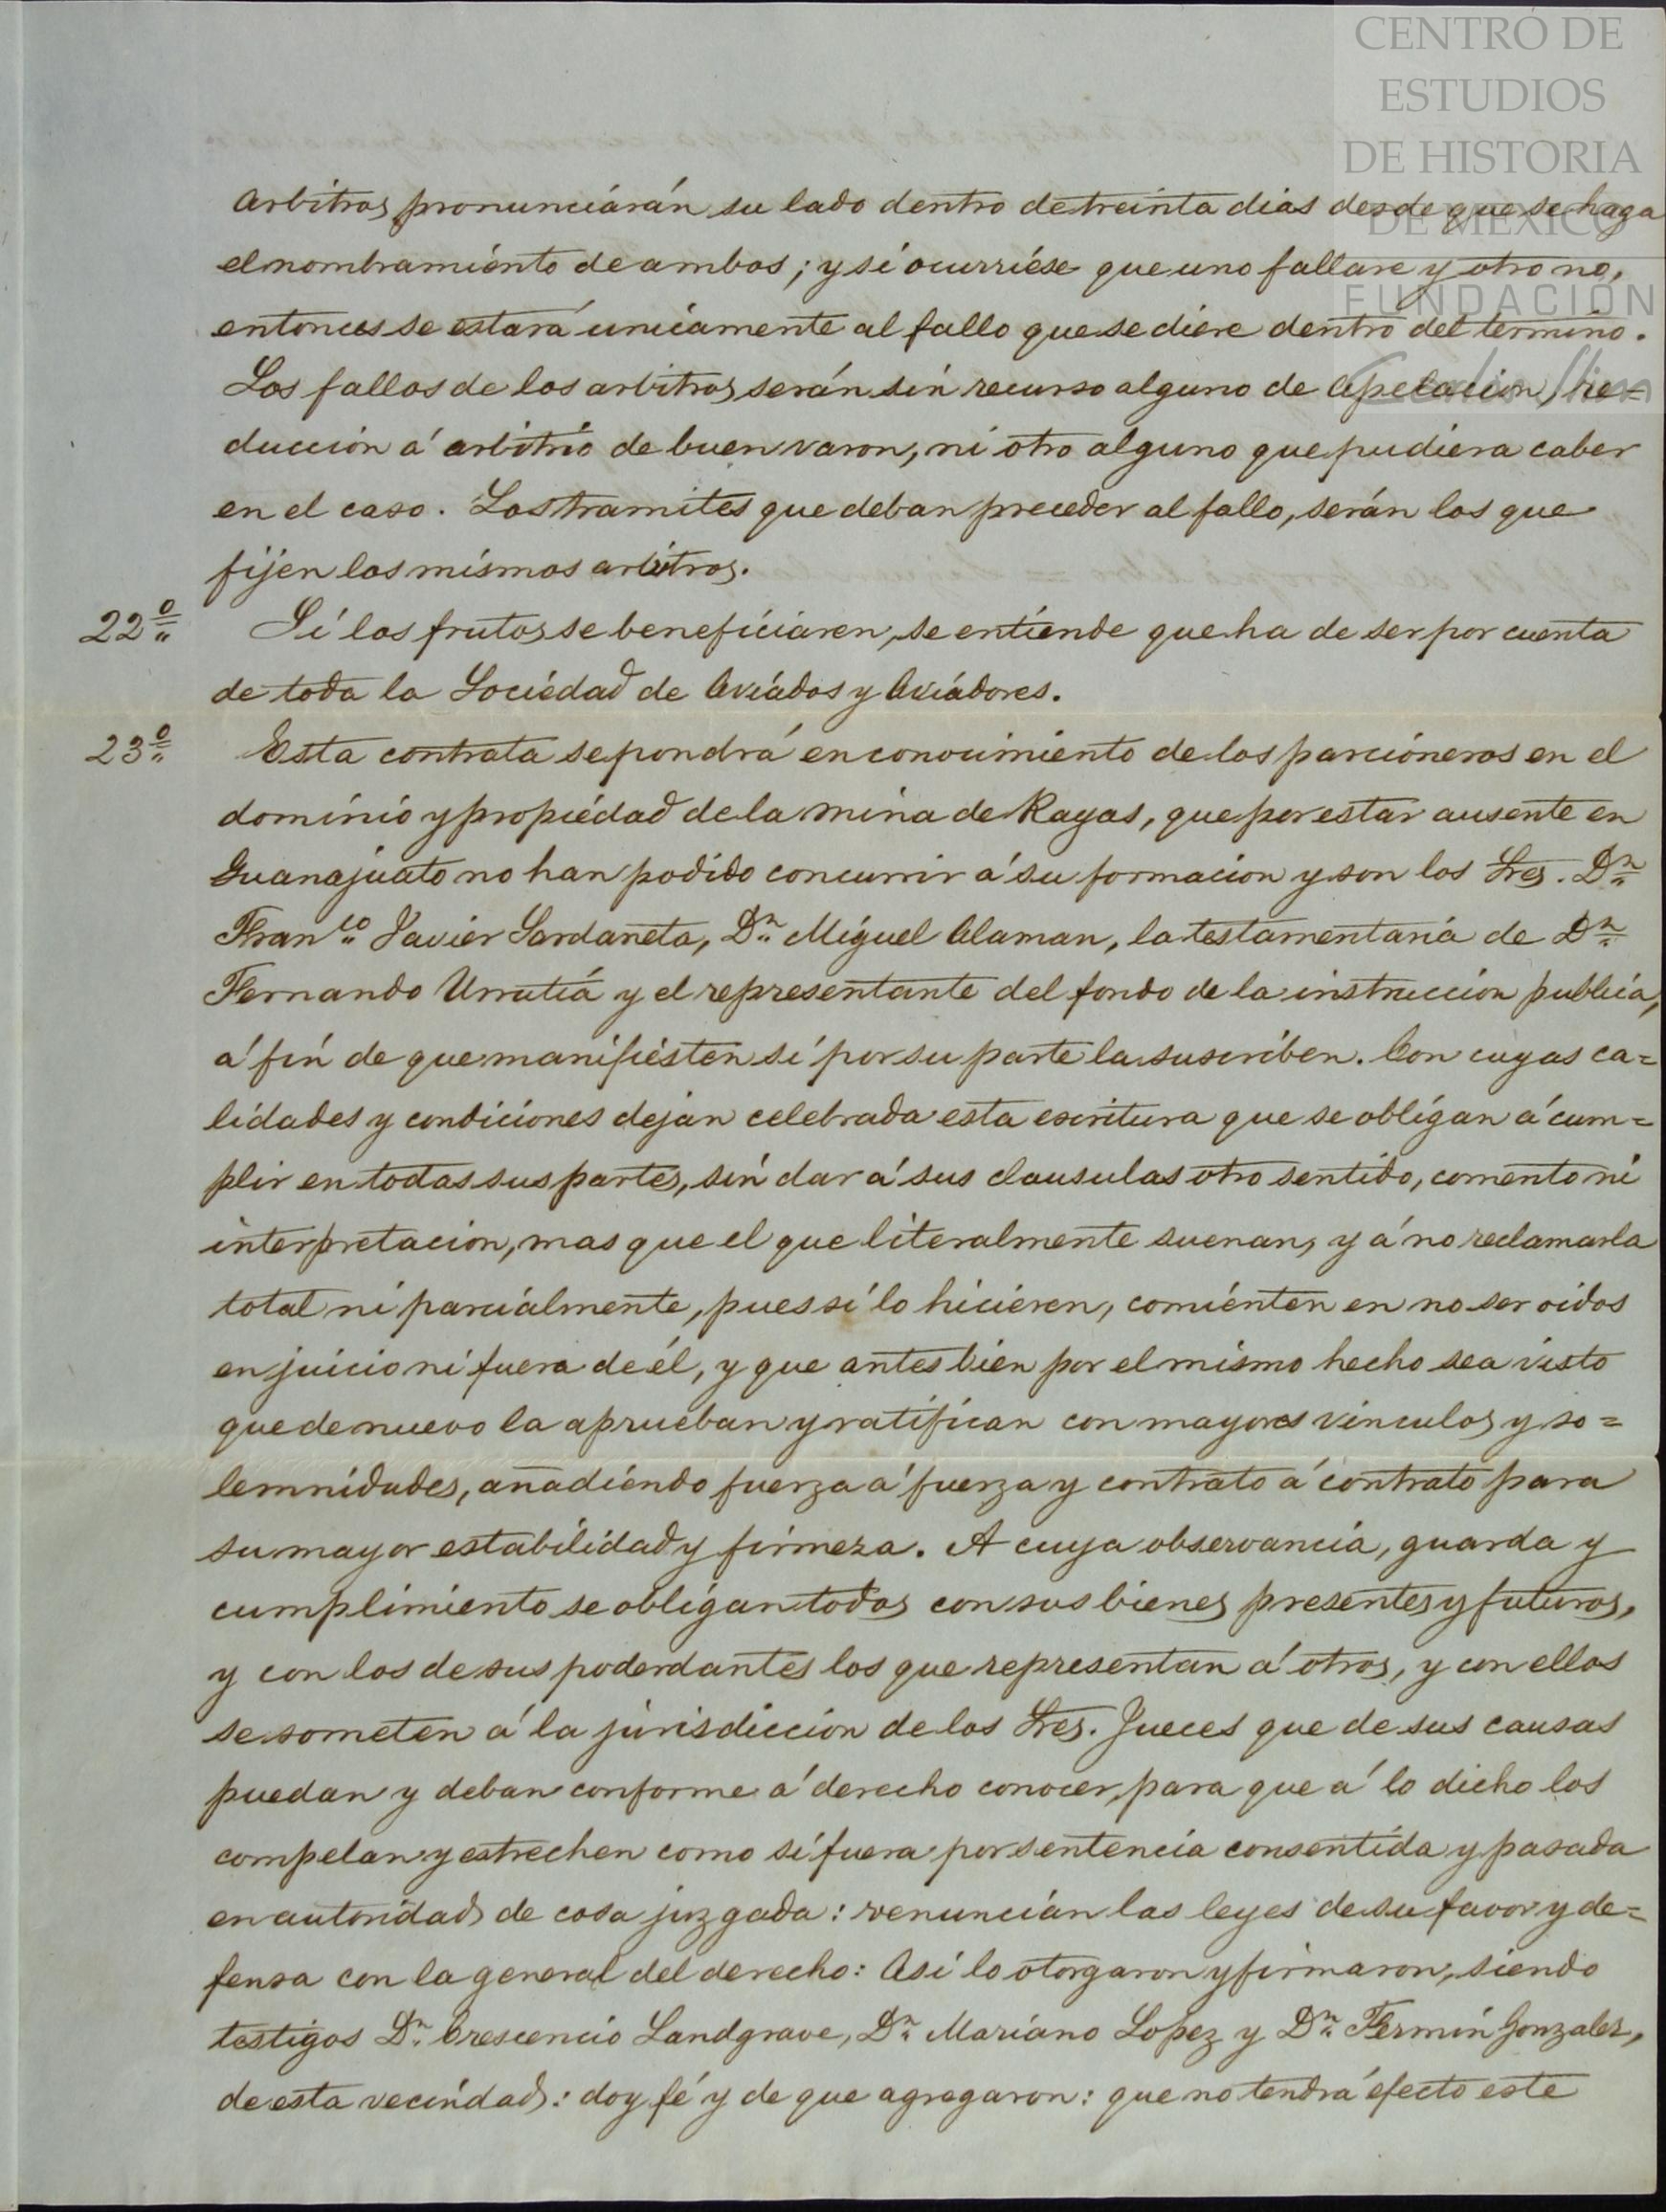 CENTRO DE
ESTUDIOS
DE HISTORIA
DE MÉXICO
FUNDACIÓN
Carlos Slim
Arbitros pronunciárán su lado dentro de treinta dias desde que se haga
el nombramiénto de ambos; y si ocurriése que uno fallare y otro no,
entonces se estará unicamente al fallo que se diere dentro del termino.
Los fallos de los arbitros serán sin recurso alguno de apelacion, re=
duccion á arbitrio de buen varon, ni otro alguno que pudiera caber
en el caso. Los tramites que deban preceder al fallo, serán los que
fijen los mismos arbitros.
22º Si los frutos se beneficiaren, se entiende que ha de ser por cuenta
de toda la Sociedad de Aviados y Aviadores.
23º Esta contrata se pondrá en conocimiento de los parcioneros en el
dominio y propiedad de la mina de Rayas, que por estar ausente en
Guanajuato no han podido concurrir á su formacion y son los Sres. Dn
Franco Javier Sardaneta, Dn Miguel Alaman, la testamentaria de Dn
Fernando Urrutia y el representante del fondo de la instruccion publica,
á fin de que manifiesten si por su parte la suscriben. Con cuyas ca=
lidades y condiciones dejan celebrada esta escritura que se obligan á cum=
plir en todas sus partes, sin dar á sus clausulas otro sentido, comento ni
interpretacion, mas que el que literalmente suenan, y á no reclamarla
total ni parcialmente, pues si lo hicieren, comienten en no ser oidos
en juicio ni fuera de él, y que antes bien por el mismo hecho sea visto
que de nuevo la aprueban y ratifican con mayores vinculos y so=
lemnidades, anadiendo fuerza á fuerza y contrato á contrato para
su mayor estabilidad y firmeza. A cuya observancia, guarda y
cumplimiento se obligan todos con sus bienes presentes y futuros,
y con los de sus poderdantes los que representan á otros, y con ellos
se someten á la jurisdiccion de los Sres. Jueces que de sus causas
puedan y deban conforme á derecho conocer, para que á lo dicho los
compelan y estrechen como si fuera por sentencia consentida y pasada
en autoridad de cosa juzgada: renuncian las leyes de su favor y de=
fensa con la general del derecho: Asi lo otorgaron y firmaron, siendo
testigos Dn Crescencio Landgrave, Dn Mariano Lopez y Dn Fermin Gonzalez,
de esta vecindad: doy fé y de que agregaron: que no tendrá efecto este